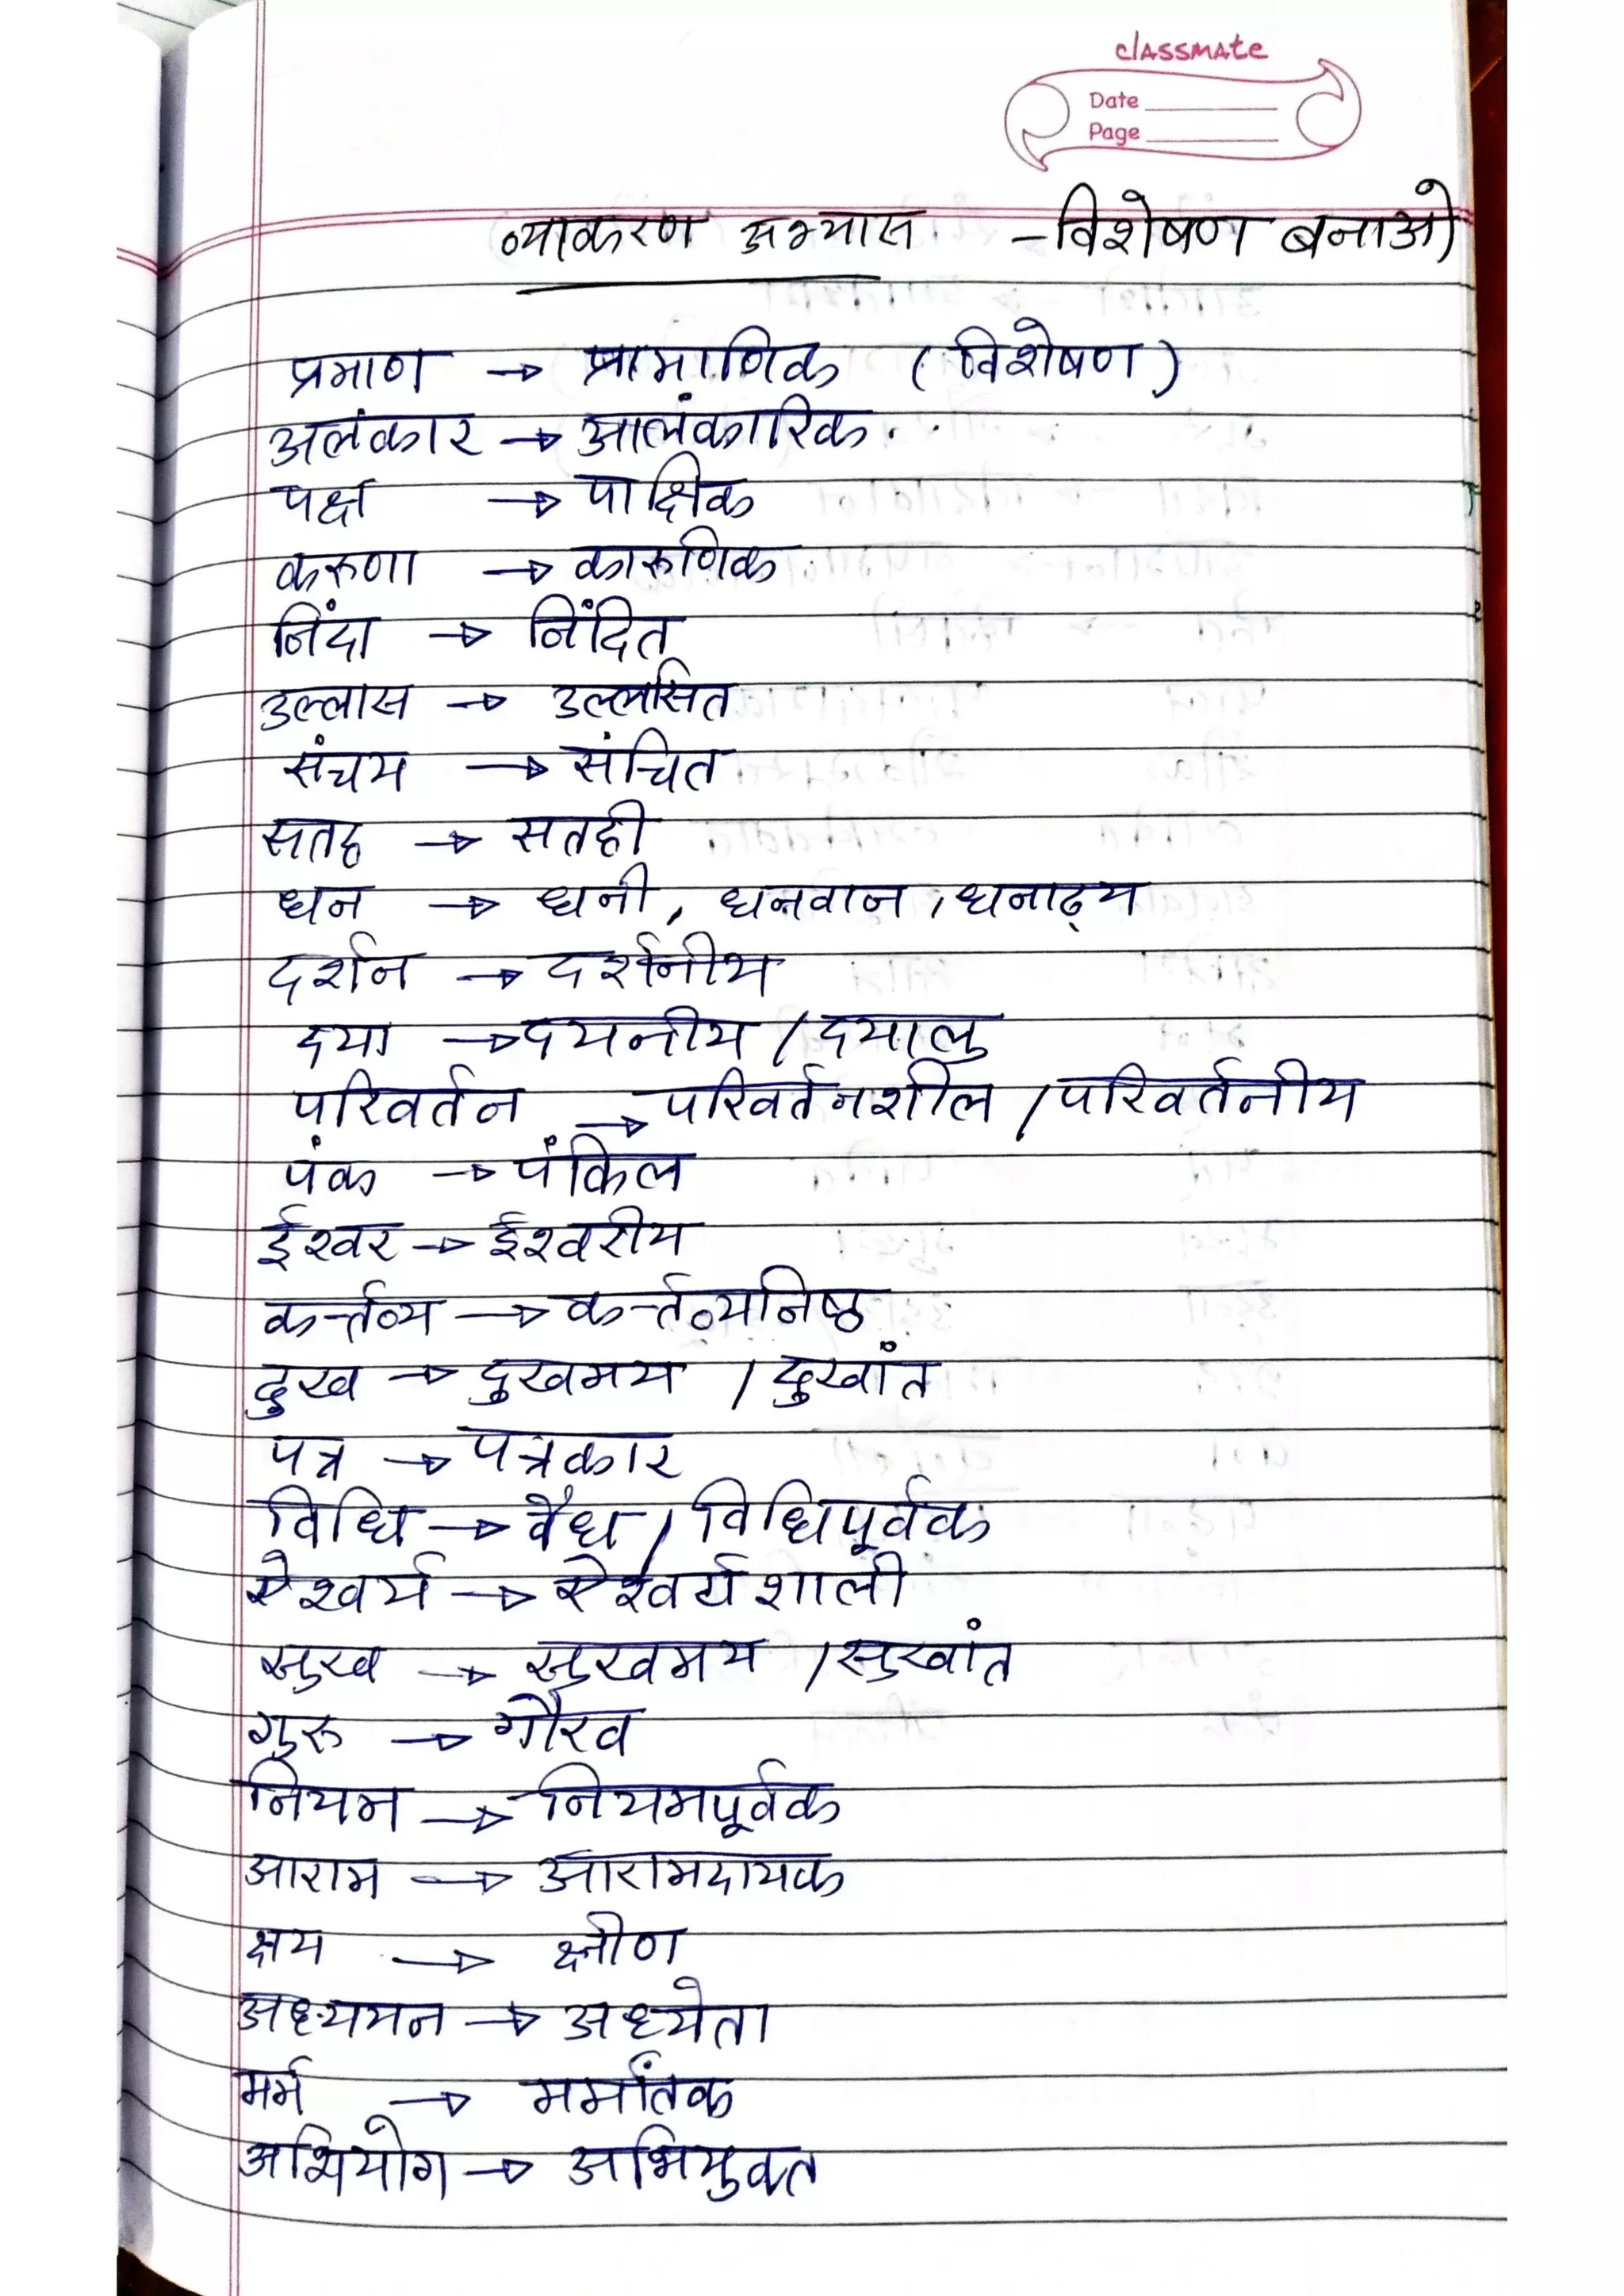 classmate
Date
Page
व्याकरण अभ्यास - विशेषण बनाओ
प्रमाण → प्रामाणिक (विशेषण)
अलंकार → आलंकारिक
पक्ष → पाक्षिक
करुणा → कारुणिक
निंदा → निंदित
उल्लास → उल्लसित
संचय → संचित
सतह → सतही
धन → धनी, धनवान, धनाढ्य
दर्शन → दर्शनीय
दया → दयनीय / दयालु
परिवर्तन → परिवर्तनशील / परिवर्तनीय
पंक → पंकिल
ईश्वर → ईश्वरीय
कर्त्तव्य → कर्त्तव्यनिष्ठ
दुख → दुखमय / दुखांत
पत्र → पत्रकार
विधि → वैध / विधिपूर्वक
ऐश्वर्य → ऐश्वर्यशाली
सुख → सुखमय / सुखांत
गुरु → गौरव
नियम → नियमपूर्वक
आराम → आरामदायक
क्षय → क्षीण
अध्ययन → अध्येता
मर्म → मर्मांतक
अभियोग → अभियुक्त